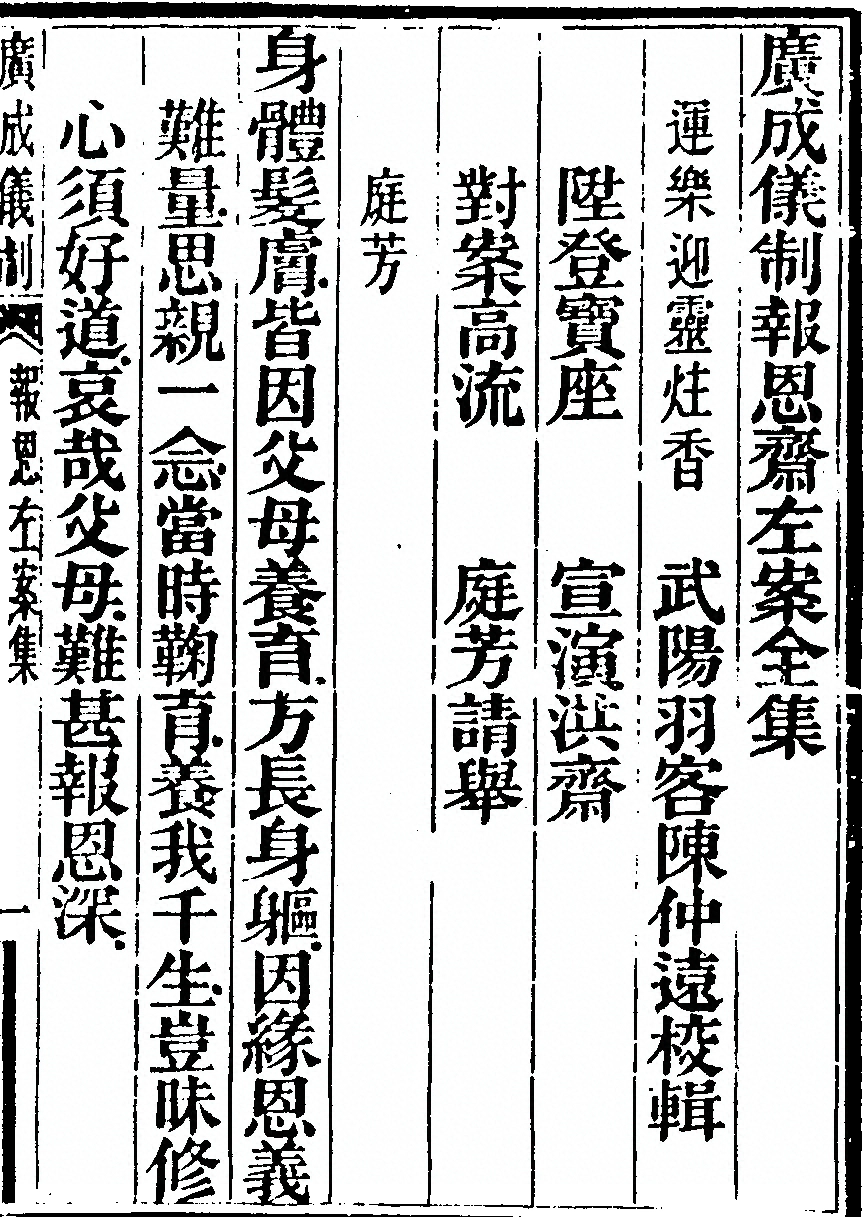 廣成儀制報恩齋左案全集
運樂迎靈炷香　武陽羽客陳仲遠校輯
陞登寶座　宣演洪齋
對案高流　庭芳請舉
庭芳
身體髮膚皆因父母養育方長身軀因緣恩義
難量思親一念當時鞠育養我千生豈昧修
心須好道哀哉父母難甚報恩深
廣成儀制　報恩左案集　一